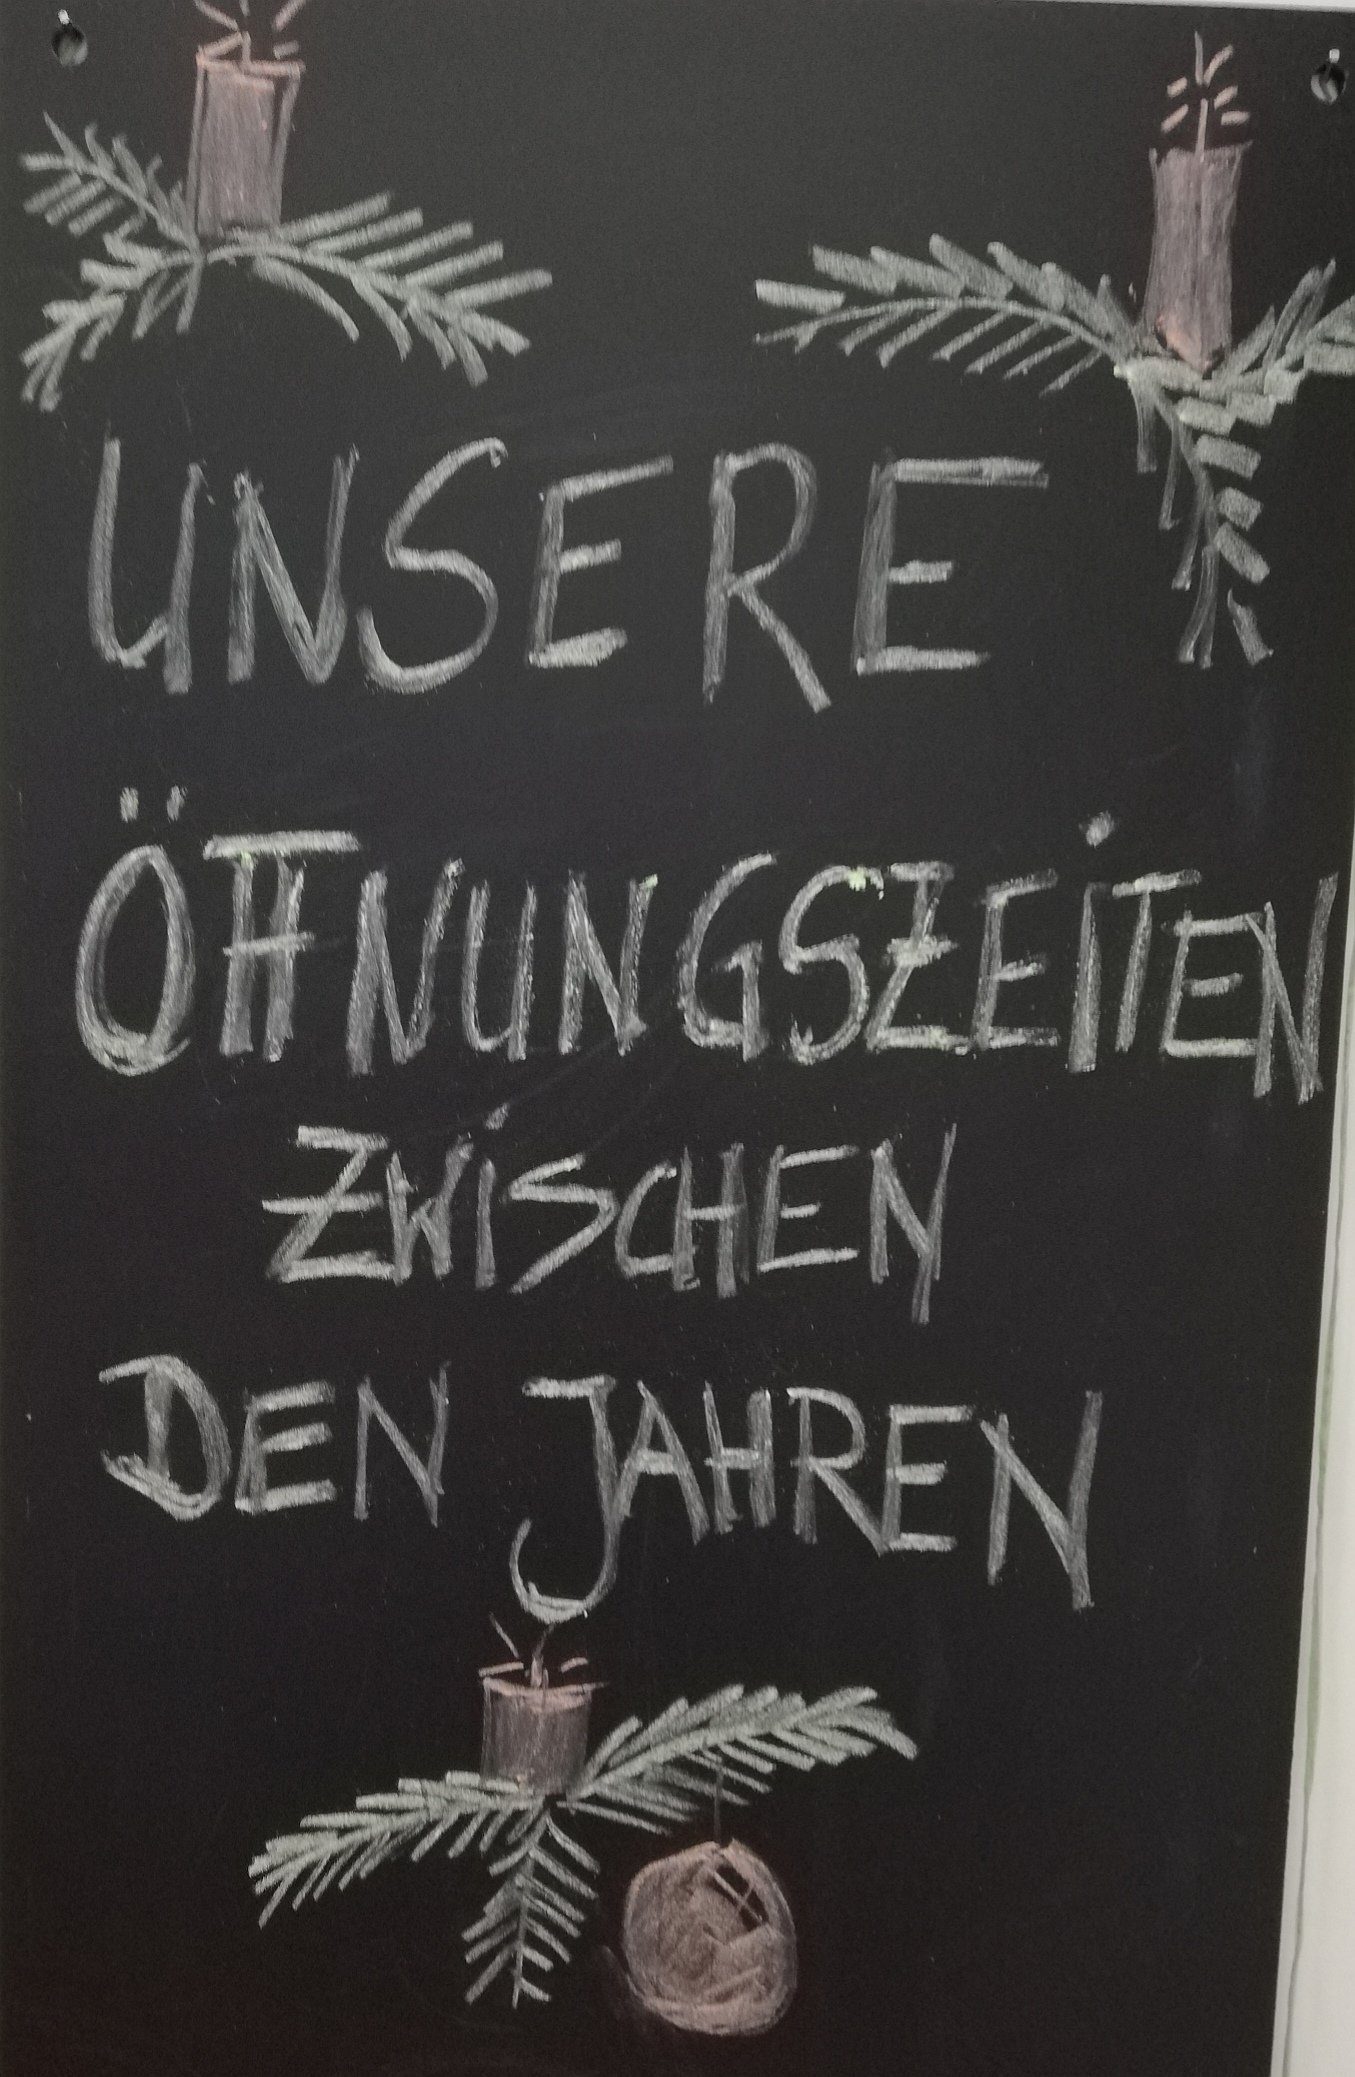 UNSERE
ÖFFNUNGSZEITEN
ZWISCHEN
DEN JAHREN